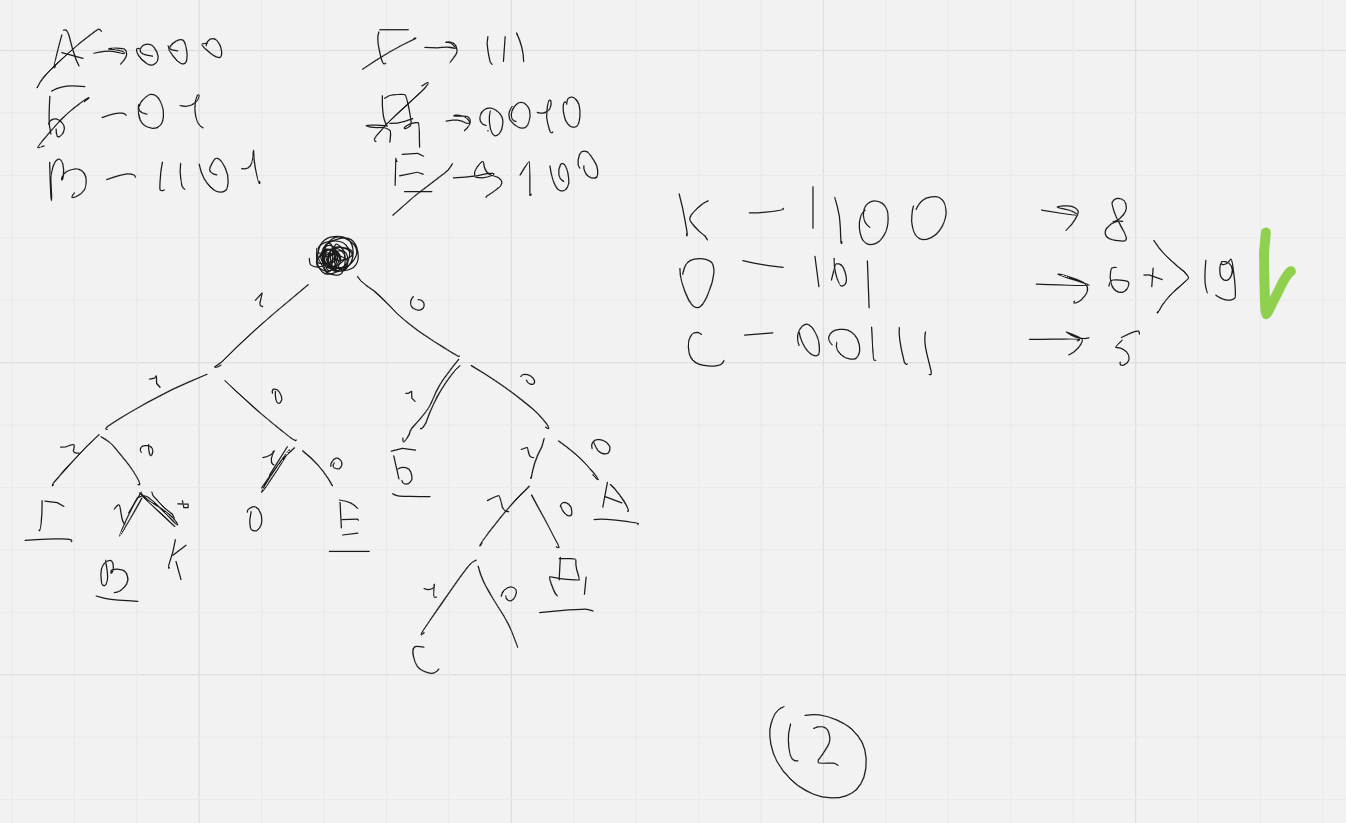 А → 000
Б - 01
В - 1101
Г → 111
Д → 0010
Е → 100
К - 1100 → 8
О - 101 → 6 + > 19
С - 00111 → 5
1 0
1 0 1 0
1 0 1 0 Б 1 0
Г 1 0 О Е 1 0 А
В К 1 0 Д
С
12